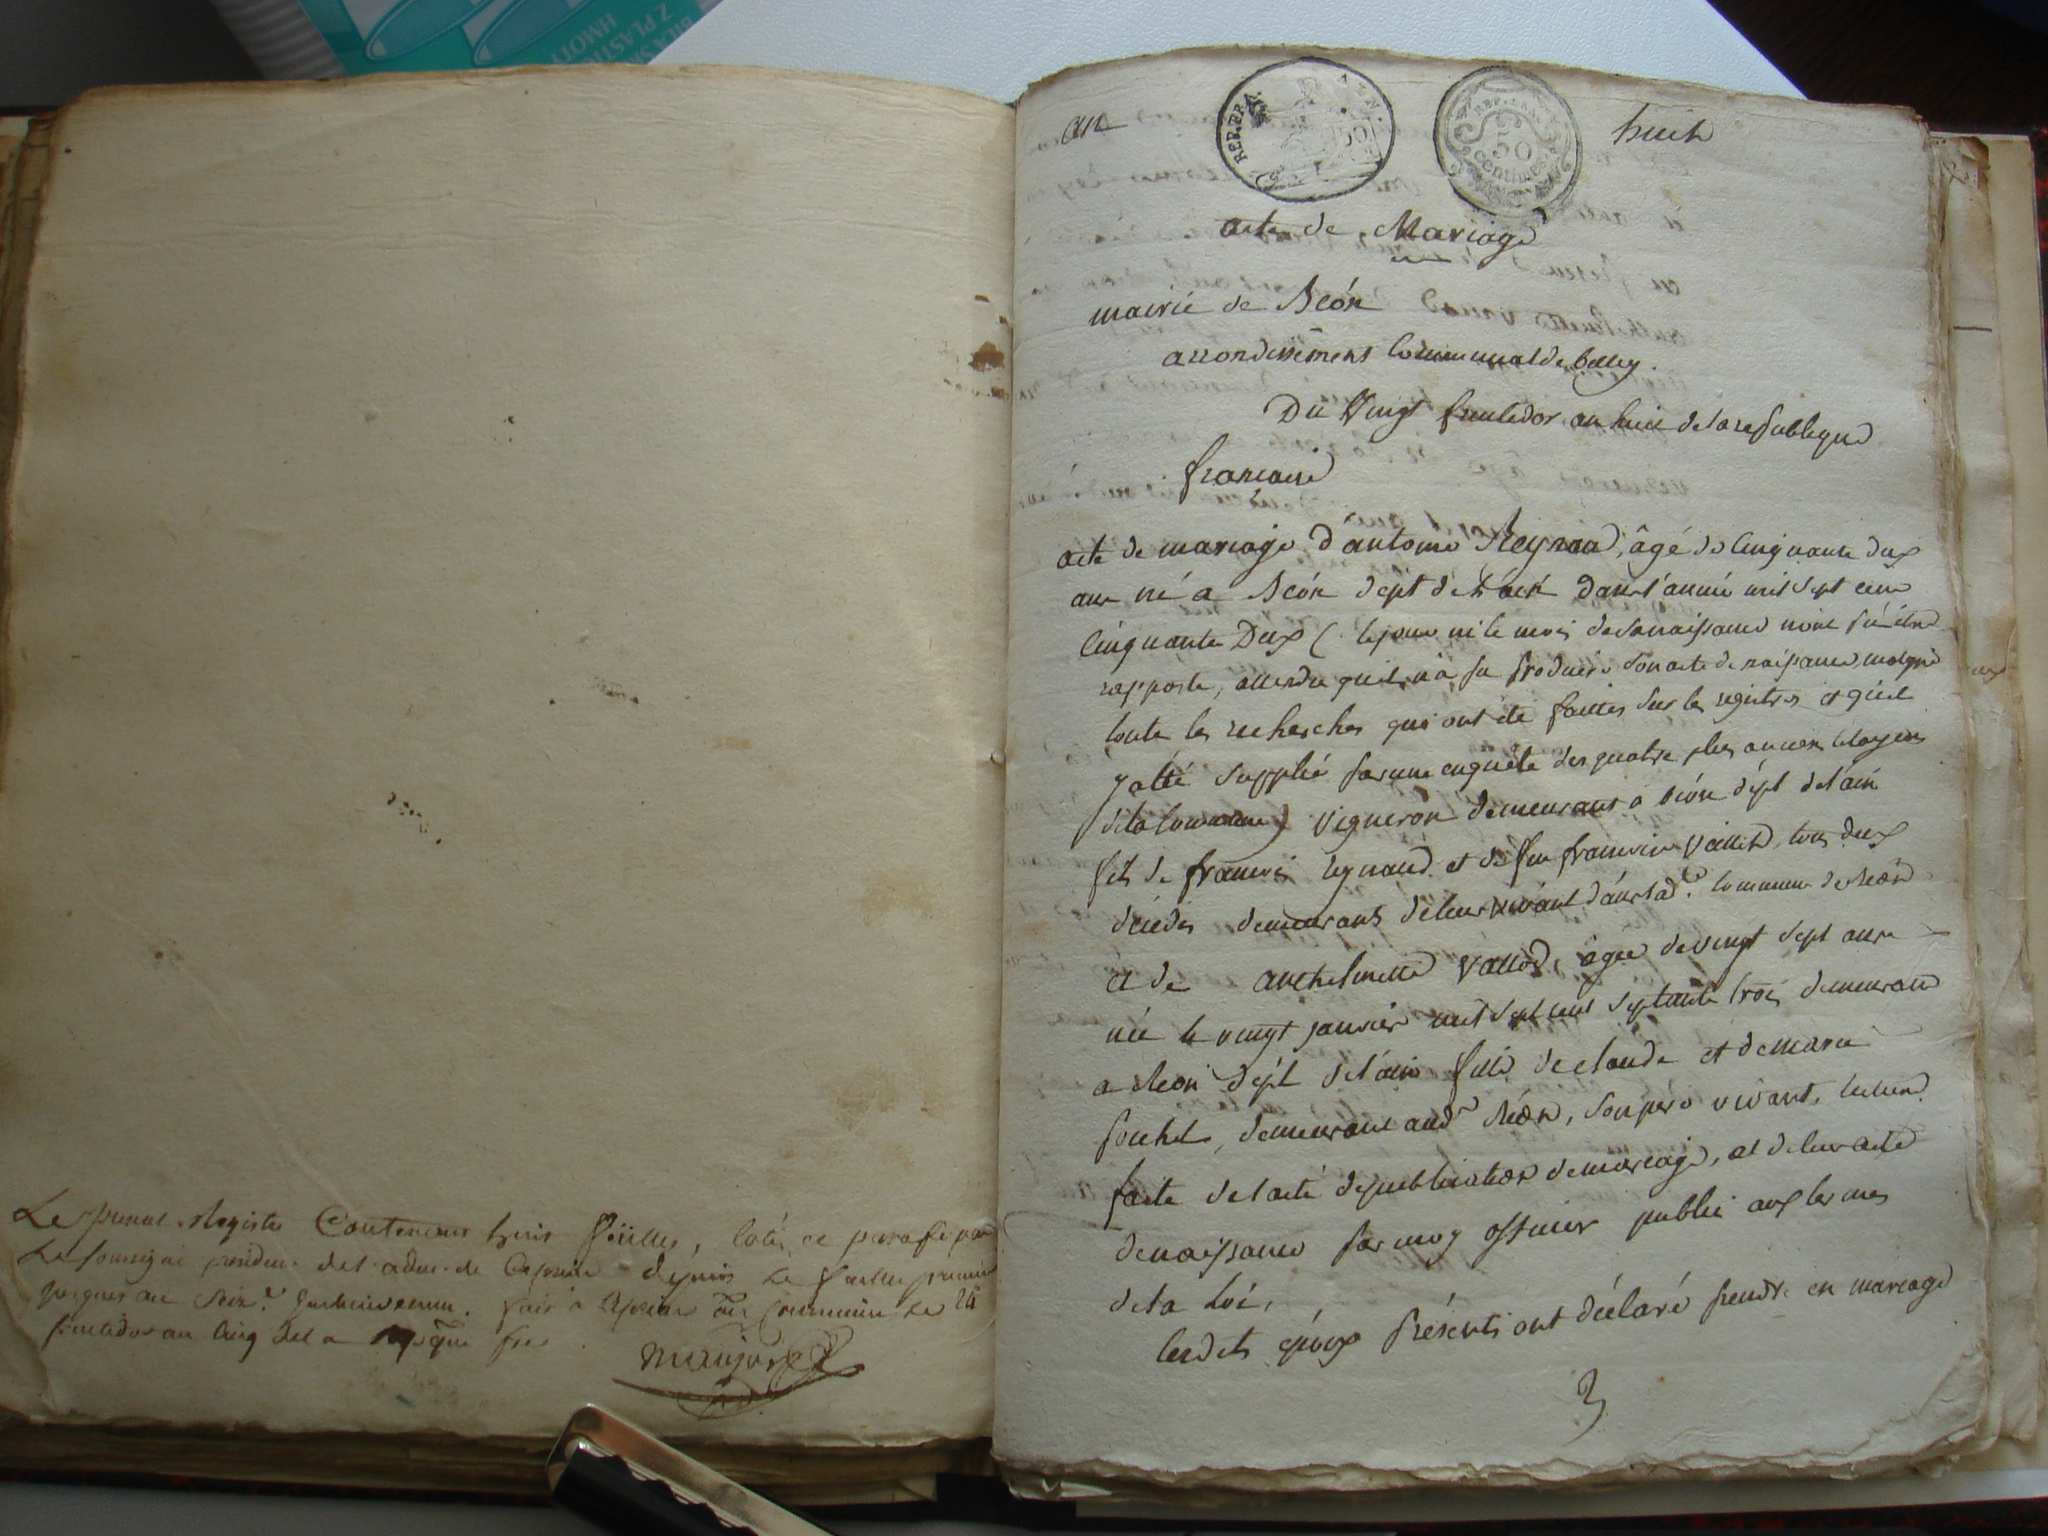 Z PLAST
HMOTY
Le present Registre Contenant huit feüilles, coté et parafé par
Le soussigné president de l'adm. de Depuis Le feuillet premier
jusques au Fait à Commune Le 24
fructidor an cinq de la Repque fse
an huit
REP. FRA.
REP. FRA.
50
centimes
acte de Mariage
mairie de Béon
arrondissement Communal de belley.
Du Vingt fructidor an huit de la republique
francaise
acte de mariage d'antoine Reynaud, âgé de cinquante deux
ans né a Béon dept de l'ain dans l'année mil sept cent
Cinquante Deux ( le jour ni le mois de sa naissance n'ont pu être
rapporté, attendu qu'il n'a pu produire son acte de naissance, malgré
toute les recherches qui ont été faittes sur les registres et qu'il
y a été supplié par une enquête des quatre plus anciens citoyens
de la commune) vigneron demeurant à Béon dépt de l'ain
fils de francois Reynaud et de feu francoise vallet, tous deux
décédés demeurants de leur vivant dans lad.e commune de Béon
et de anthelmette vallod, âgée de vingt sept ans
née le vingt janvier mil sept cent septante trois demeurant
a Béon dépt de l'ain fille de claude et de marie
pochet, demeurant aud. Béon, son pere vivant, lecture
faite de l'acte de publication de mariage, et de leur acte
de naissance par moy officier public aux termes
de la Loi,
lesdits époux présents ont déclaré prendre en mariage